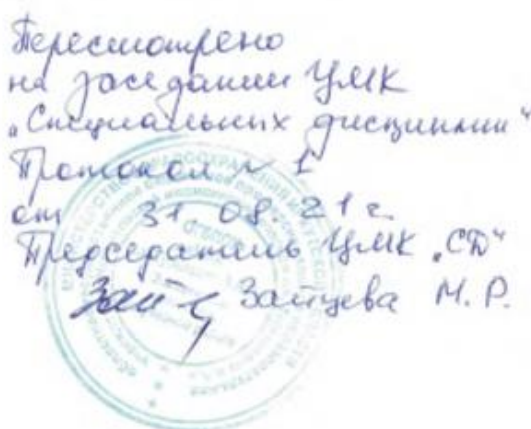 Пересмотрено
на заседании ЦМК
„Специальных дисциплин“
Протокол № 1
от 31 08. 21 г.
Председатель ЦМК „СД“
Зайцева М. Р.